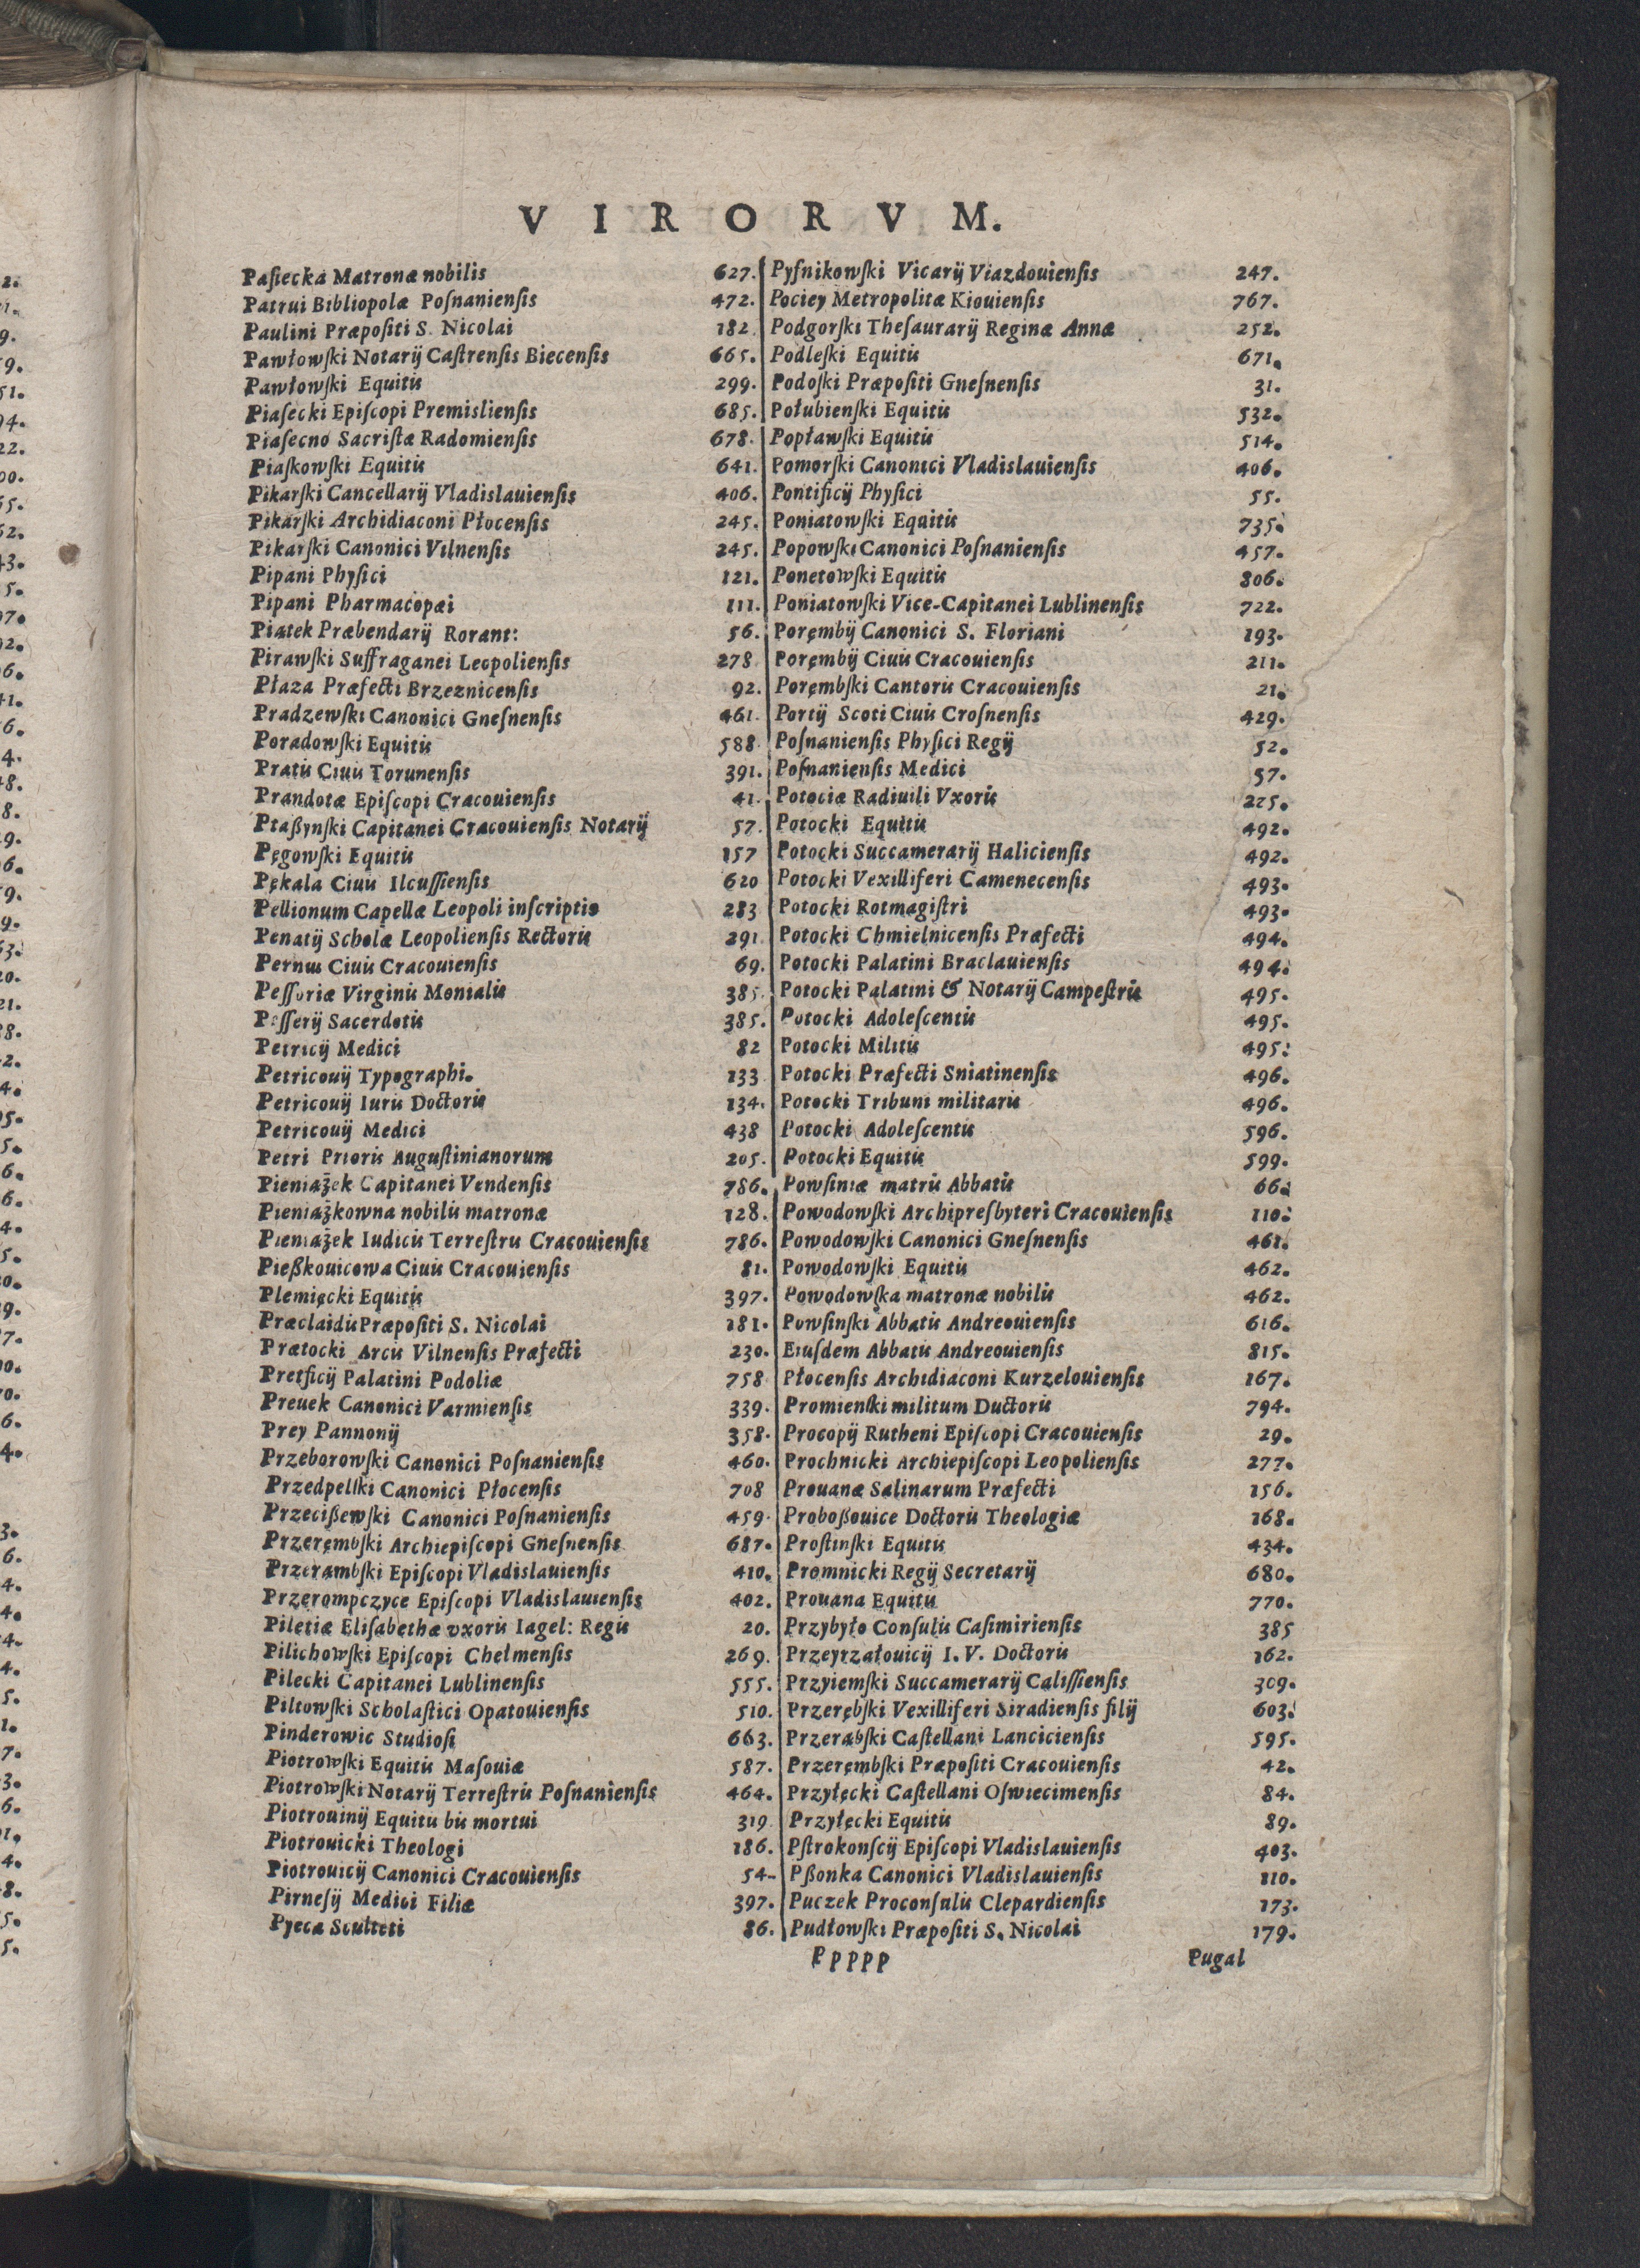 VIRORVM.
Paſiecka Matronæ nobilis 627.
Patrui Bibliopolæ Poſnanienſis 472.
Paulini Præpoſiti S. Nicolai 182
Pawłowſki Notarij Caſtrenſis Biecenſis 665.
Pawłowſki Equitis 299.
Piaſecki Epiſcopi Premislienſis 685.
Piaſecno Sacriſtæ Radomienſis 678.
Piaſkowſki Equitis 641.
Pikarſki Cancellarij Vladislauienſis 406.
Pikarſki Archidiaconi Płocenſis 245.
Pikarſki Canonici Vilnenſis 245.
Pipani Phyſici 121.
Pipani Pharmacopæi 111.
Piatek Præbendarij Rorant: 56.
Pirawſki Suffraganei Leopolienſis 278
Płaza Præfecti Brzeznicenſis 92.
Pradzewſki Canonici Gneſnenſis 461.
Poradowſki Equitis 588
Pratis Ciuis Torunenſis 391.
Prandotæ Epiſcopi Cracouienſis 41.
Ptaßynſki Capitanei Cracouienſis Notarij 57.
Pęgowſki Equitis 157
Pękala Ciuis Ilcuſſienſis 620
Pellionum Capellæ Leopoli inſcriptio 283
Penatij Scholæ Leopolienſis Rectoris 291
Pernus Ciuis Cracouienſis 69.
Peſſoriæ Virginis Monialis 385.
Peſſerij Sacerdotis 385.
Petricij Medici 82
Petricouij Typographi. 133
Petricouij Iuris Doctoris 134.
Petricouij Medici 438
Petri Prioris Auguſtinianorum 205.
Pieniaʒek Capitanei Vendenſis 786.
Pieniaʒkowna nobilis matronæ 128.
Pieniaʒek Iudicis Terreſtris Cracouienſis 786.
Pießkouicowa Ciuis Cracouienſis 81.
Plemięcki Equitis 397.
Præclaidis Præpoſiti S. Nicolai 181.
Prætocki Arcis Vilnenſis Præfecti 230.
Pretficij Palatini Podoliæ 758
Preuek Canonici Varmienſis 339.
Prey Pannonij 358.
Przeborowſki Canonici Poſnanienſis 460.
Przedpelſki Canonici Płocenſis 708
Przecißewſki Canonici Poſnanienſis 459.
Przerębſki Archiepiſcopi Gneſnenſis 687.
Przerambſki Epiſcopi Vladislauienſis 410.
Przerompczyce Epiſcopi Vladislauienſis 402.
Piletiæ Eliſabethæ vxoris Iagel: Regis 20.
Pilichowſki Epiſcopi Chelmenſis 269.
Pilecki Capitanei Lublinenſis 555.
Piltowſki Scholaſtici Opatouienſis 510.
Pinderowic Studioſi 663.
Piotrowſki Equitis Maſouiæ 587.
Piotrowſki Notarij Terreſtris Poſnanienſis 464.
Piotrouinij Equitis bis mortui 319
Piotrouicki Theologi 186.
Piotrouicij Canonici Cracouienſis 54-
Pirneſij Medici Filiæ 397.
Pyeca Sculteti 86.
Pyſnikowſki Vicarij Viazdouienſis 247.
Pociey Metropolitæ Kiouienſis 767.
Podgorſki Theſaurarij Reginæ Annæ 252.
Podleſki Equitis 671.
Podoſki Præpoſiti Gneſnenſis 31.
Połubienſki Equitis 532.
Popławſki Equitis 514.
Pomorſki Canonici Vladislauienſis 406.
Pontificij Phyſici 55.
Poniatowſki Equitis 735.
Popowſki Canonici Poſnanienſis 457.
Ponetowſki Equitis 806.
Poniatowſki Vice-Capitanei Lublinenſis 722.
Porębij Canonici S. Floriani 193.
Porębij Ciuis Cracouienſis 211.
Porębſki Cantoris Cracouienſis 21.
Portij Scoti Ciuis Croſnenſis 429.
Poſnanienſis Phyſici Regij 52.
Poſnanienſis Medici 57.
Potociæ Radiuili Vxoris 225.
Potocki Equitis 492.
Potocki Succamerarij Halicienſis 492.
Potocki Vexilliferi Camenecenſis 493.
Potocki Rotmagiſtri 493.
Potocki Chmielnicenſis Præfecti 494.
Potocki Palatini Braclauienſis 494.
Potocki Palatini & Notarij Campeſtris 495.
Potocki Adoleſcentis 495.
Potocki Militis 495.
Potocki Præfecti Sniatinenſis 496.
Potocki Tribuni militaris 496.
Potocki Adoleſcentis 596.
Potocki Equitis 599.
Powſiniæ matris Abbatis 66.
Powodowſki Archipreſbyteri Cracouienſis 110.
Powodowſki Canonici Gneſnenſis 461.
Powodowſki Equitis 462.
Powodowſka matronæ nobilis 462.
Powſinſki Abbatis Andreouienſis 616.
Eiuſdem Abbatis Andreouienſis 815.
Płocenſis Archidiaconi Kurzelouienſis 167.
Promienſki militum Ductoris 794.
Procopij Rutheni Epiſcopi Cracouienſis 29.
Prochnicki Archiepiſcopi Leopolienſis 277.
Prouanæ Salinarum Præfecti 156.
Proboßouice Doctoris Theologiæ 168.
Proſtinſki Equitis 434.
Promnicki Regij Secretarij 680.
Prouana Equitis 770.
Przybyło Conſulis Caſimirienſis 385
Przeyrzałouicij I. V. Doctoris 162.
Przyiemſki Succamerarij Caliſſienſis 309.
Przerębſki Vexilliferi Siradienſis filij 603.
Przerabſki Caſtellani Lancicienſis 595.
Przerembſki Præpoſiti Cracouienſis 42.
Przyłęcki Caſtellani Oſwiecimenſis 84.
Przyłęcki Equitis 89.
Pſtrokonſcij Epiſcopi Vladislauienſis 403.
Pßonka Canonici Vladislauienſis 110.
Puczek Proconſulis Clepardienſis 173.
Pudłowſki Præpoſiti S. Nicolai 179.
Ppppp Pugal